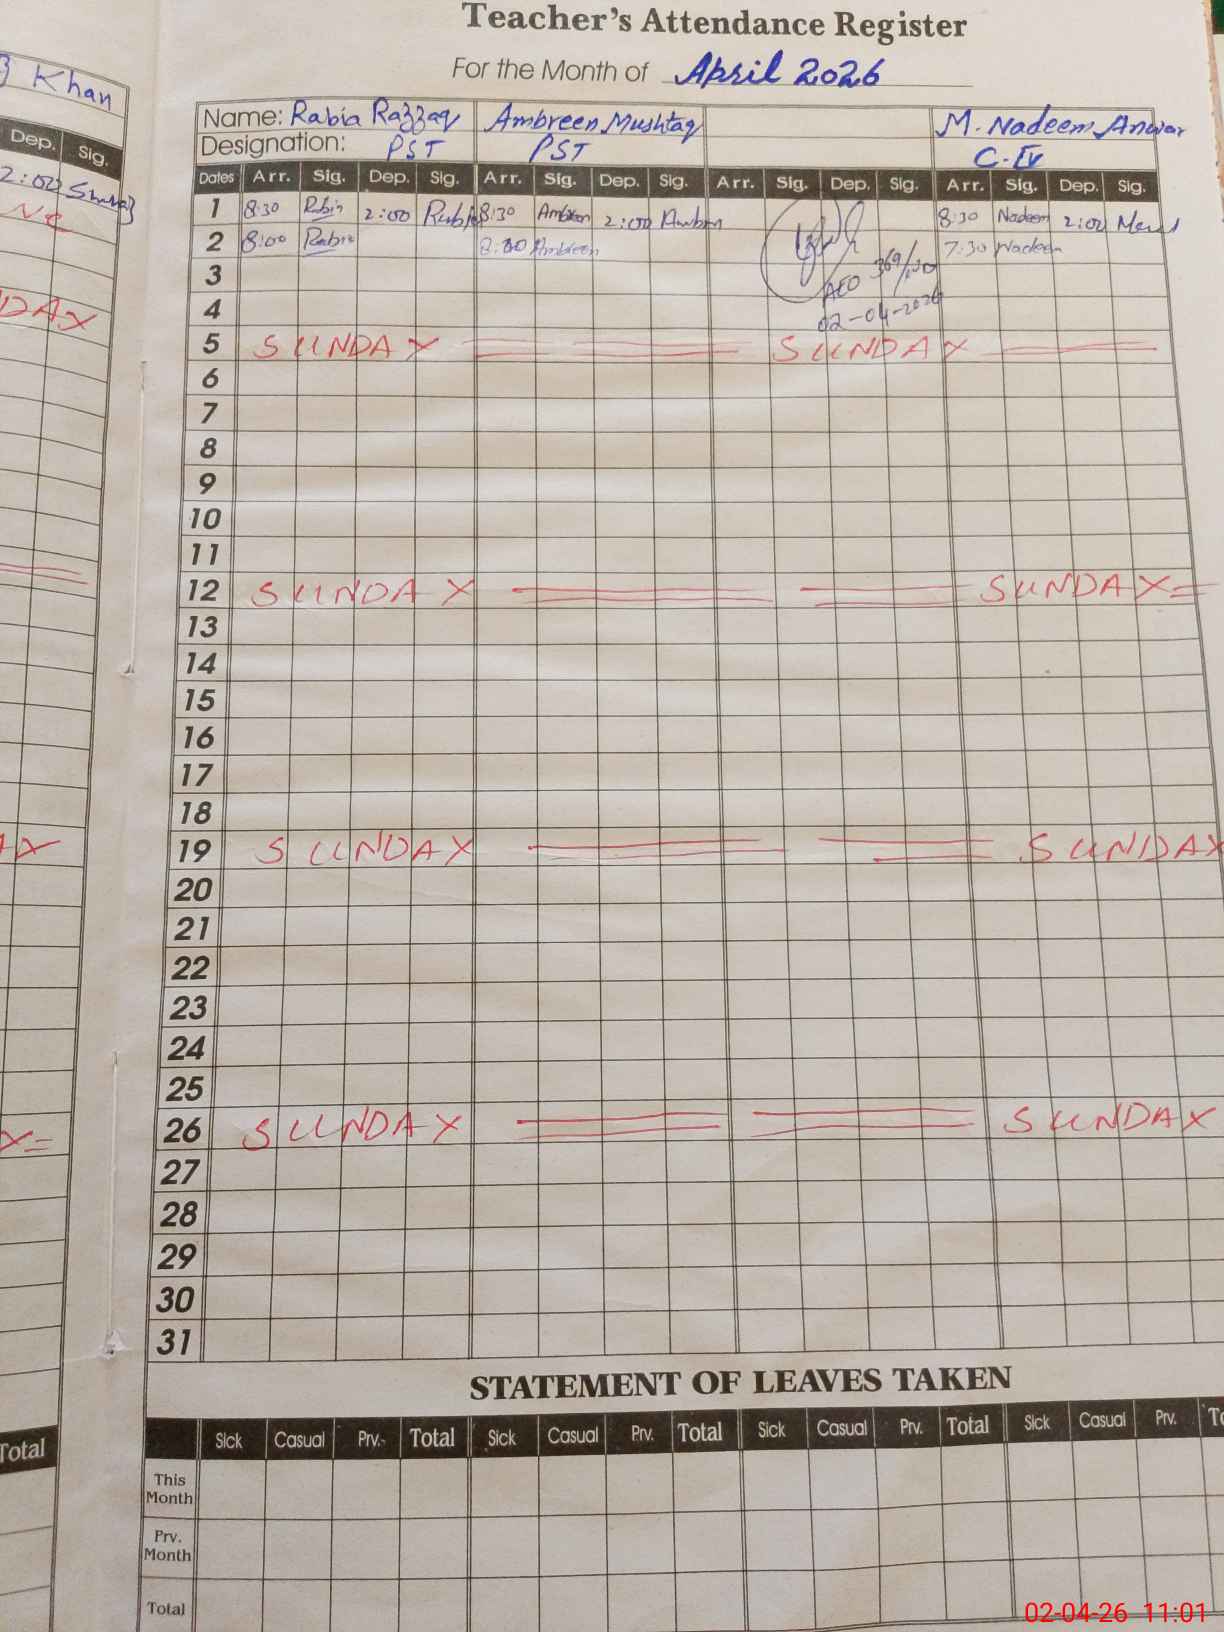 Teacher's Attendance Register
For the Month of April 2026
Khan
Name: Rabia Razzaq Ambreen Mushtaq M. Nadeem Anwar
Designation: PST PST C-IV
Dep. Sig.
Dates Arr. Sig. Dep. Sig. Arr. Sig. Dep. Sig. Arr. Sig. Dep. Sig. Arr. Sig. Dep. Sig.
1 8:30 Rabia 2:00 8:30 Ambreen 2:00 8:30 Nadeem 2:00
2 8:00 Rabia Ambreen 7:30 Nadeem
3
AEO
4
02-04-2026
5 SUNDAY SUNDAY
6
7
8
9
10
11
12 SUNDAY SUNDAY
13
14
15
16
17
18
19 SUNDAY SUNDAY
20
21
22
23
24
25
26 SUNDAY SUNDAY
27
28
29
30
31
STATEMENT OF LEAVES TAKEN
Total
Sick Casual Prv. Total Sick Casual Prv. Total Sick Casual Prv. Total Sick Casual Prv.
This Month
Prv. Month
Total
02-04-26 11:01